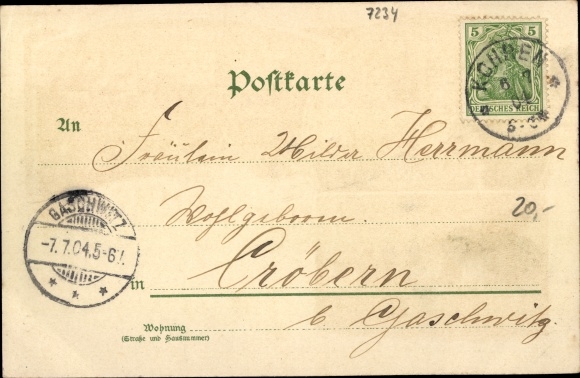 7234
5 5
DEUTSCHES REICH
KOHREN
6 7
5-6
Postkarte
An
Fräulein Hilder Herrmann
Wohlgeboren.
20,-
GASCHWITZ
-7.7.04.5-6N.
in Cröbern
b. Gaschwitz.
Wohnung
(Straße und Hausnummer)